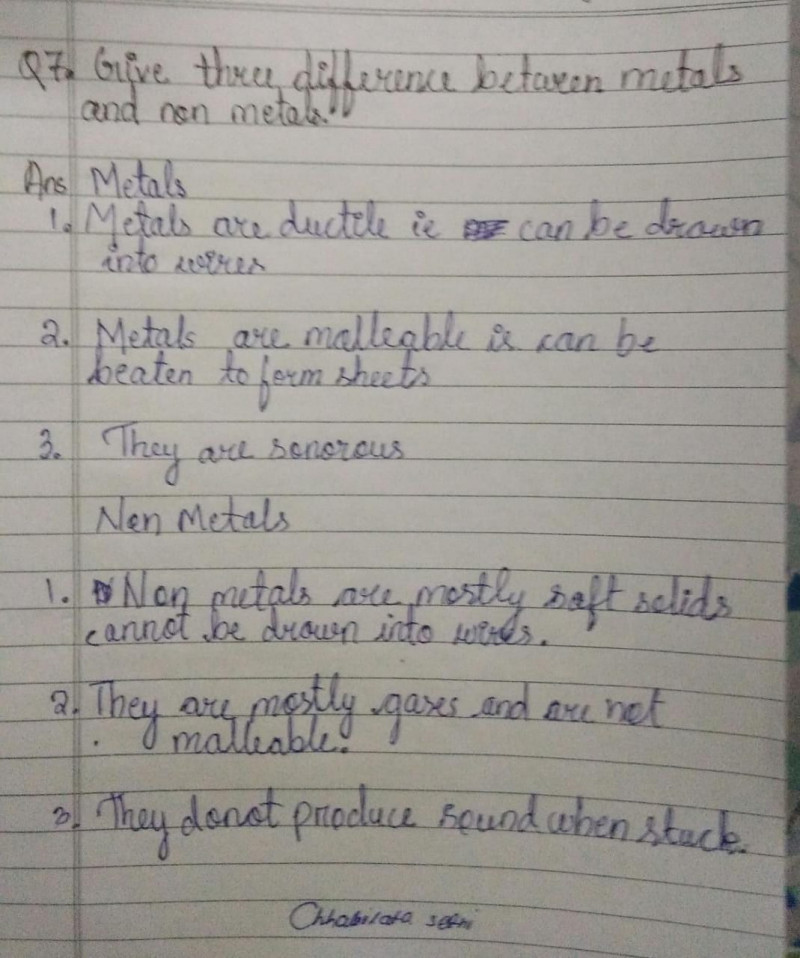 Q7. Give three difference between metals
and non metals.
Ans Metals
1. Metals are ductile ie can be drawn
into wires
2. Metals are malleable ie can be
beaten to form sheets
3. They are sonorous
Non Metals
1. Non metals are mostly soft solids
cannot be drawn into
2. They are mostly gases and are not
malleable.
3. They donot produce sound when stuck.
Chhabilata sethi